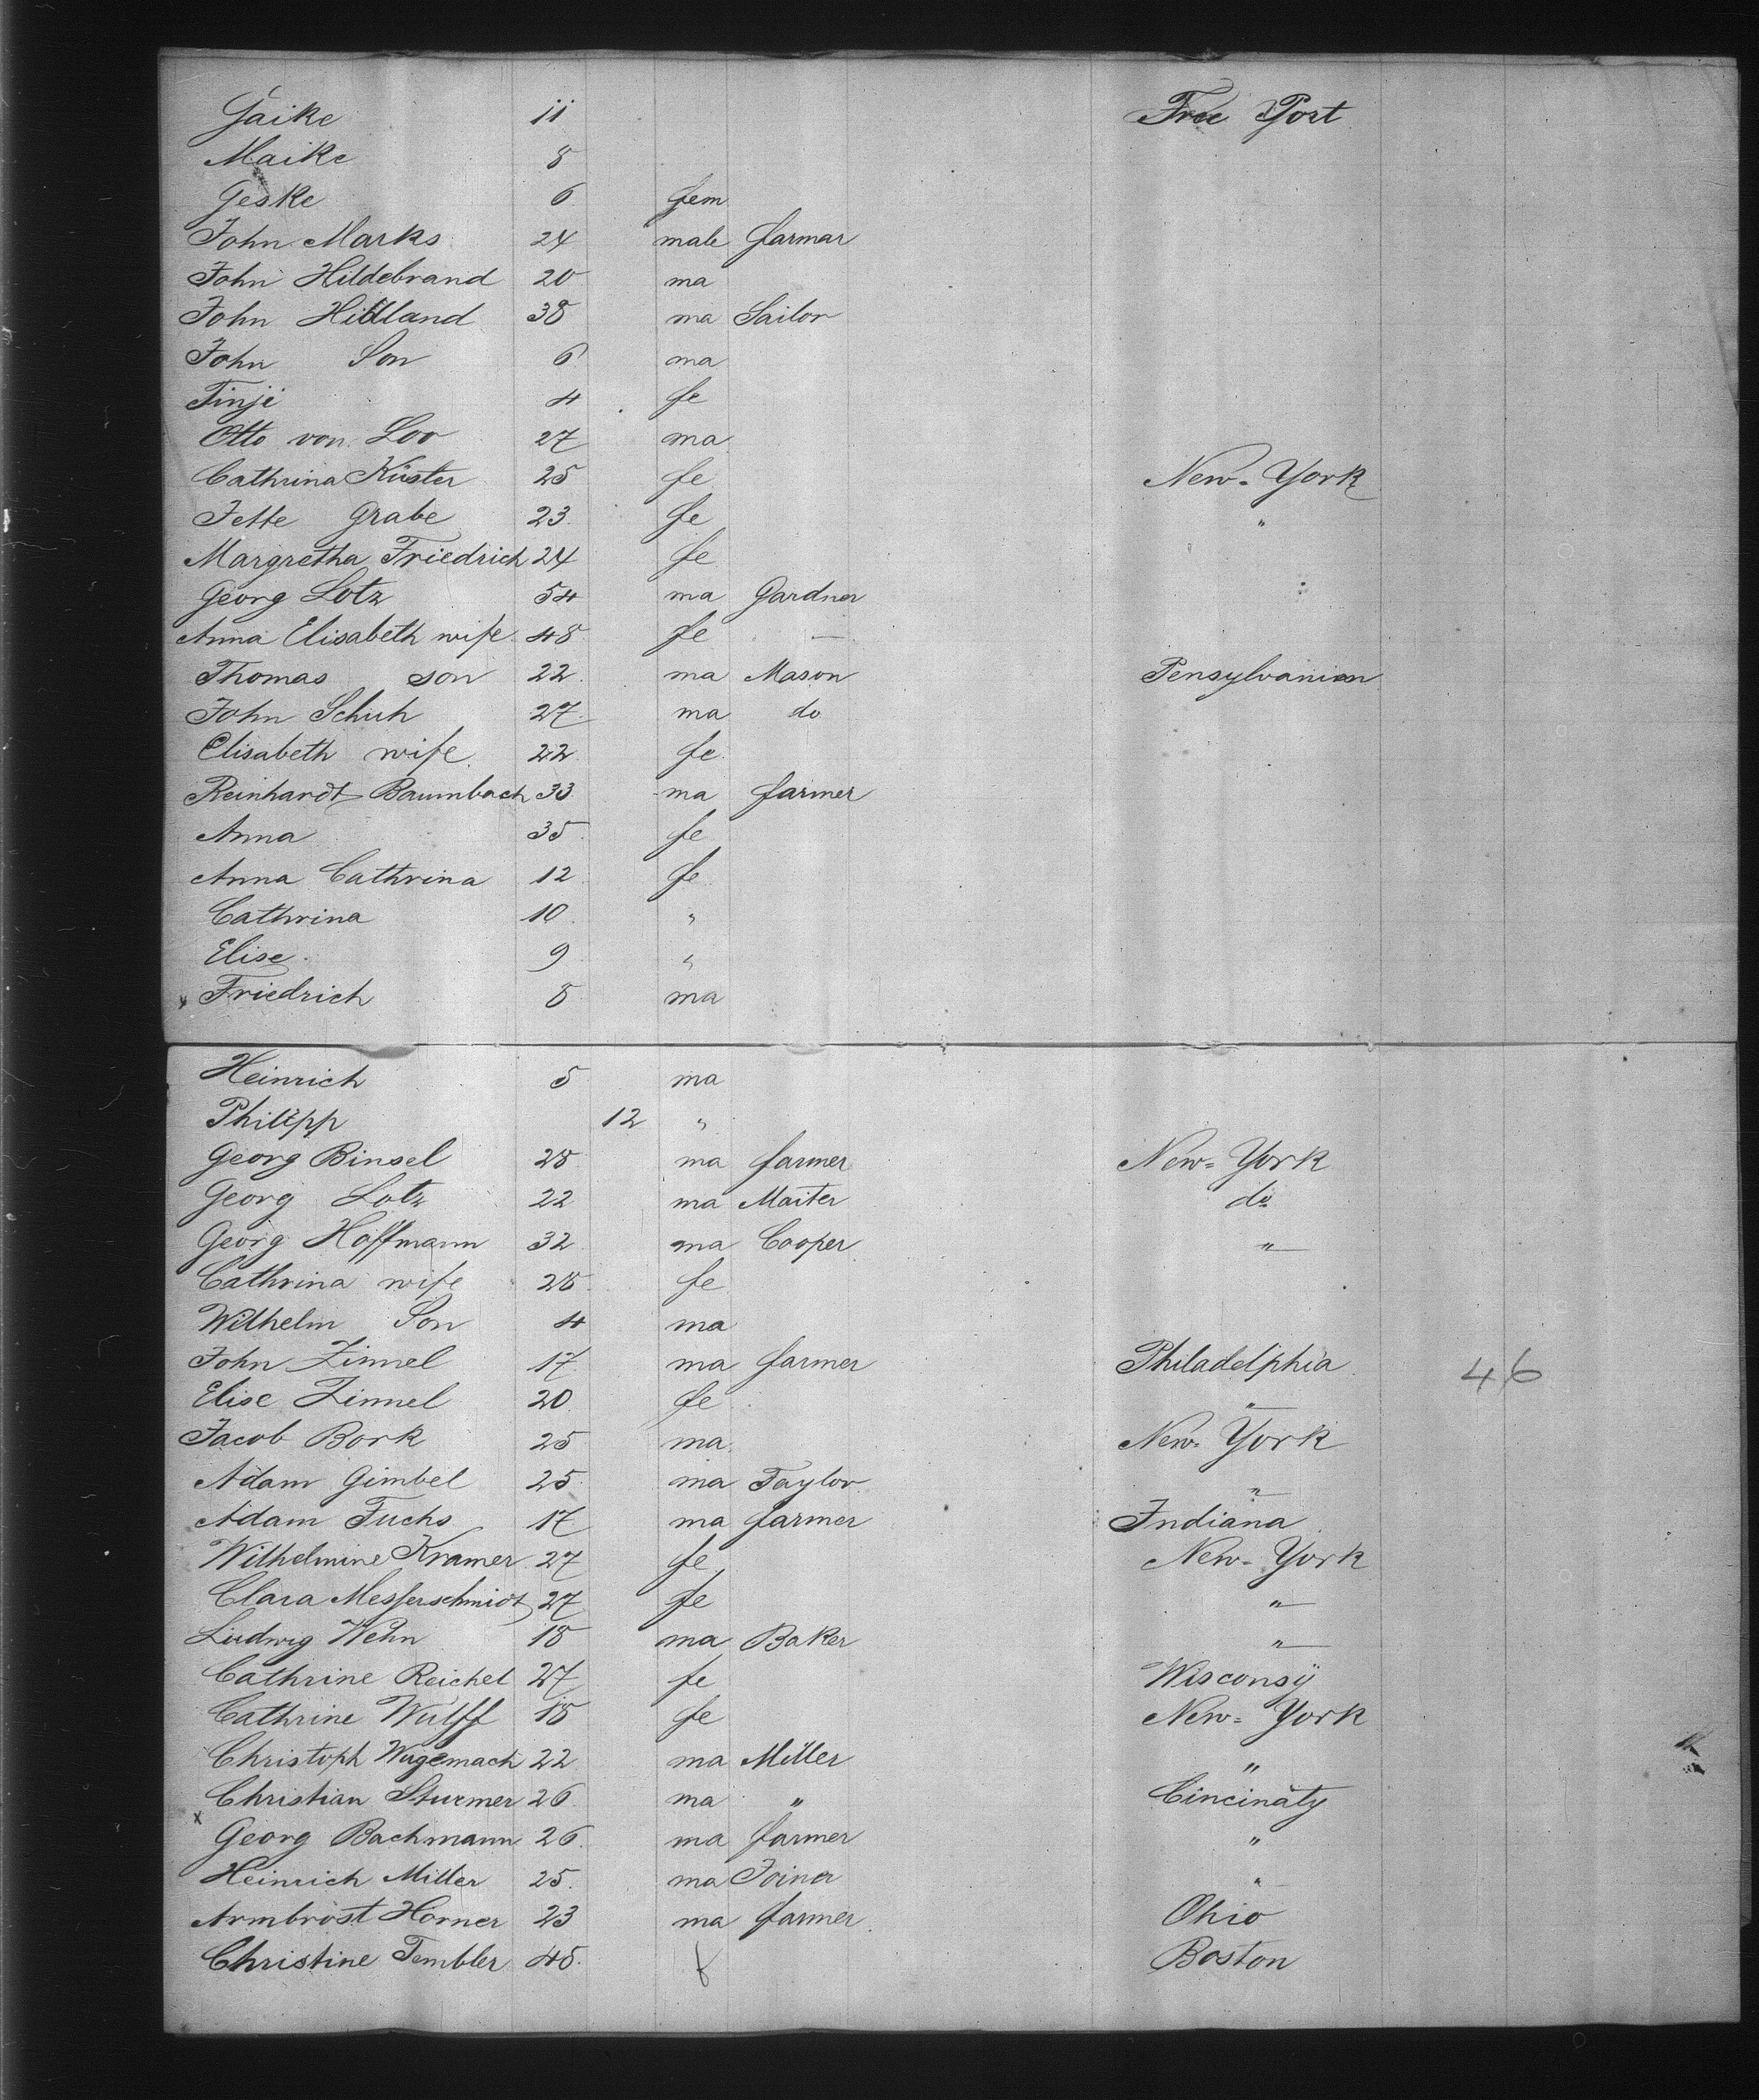 Gaike 11 Free Port
Maike 8
Geske 6 fem
John Marks 24 male farmar
John Hildebrand 20 ma
John Hildland 38 ma Sailor
John Son 6 ma
Tinje 4 fe
Otto von Loo 27 ma
Cathrina Küster 25 fe New-York
Jette Grabe 23 fe "
Margretha Friedrich 24 fe
Georg Lotz 54 ma Gardner
Anna Elisabeth wife 48 fe —
Thomas son 22 ma Mason Pensylvanien
John Schuh 27 ma do
Elisabeth wife 22 fe
Reinhardt Baumbach 33 ma farmer
Anna 35 fe
Anna Cathrina 12 fe
Cathrina 10 "
Elise 9 "
Friedrich 8 ma
Heinrich 5 ma
Philipp 12 "
Georg Binsel 28 ma farmer New-York
Georg Lotz 22 ma Maiter do
Georg Hoffmann 32 ma Cooper "
Cathrina wife 28 fe
Wilhelm Son 4 ma
John Zinnel 17 ma farmer Philadelphia 46
Elise Zinnel 20 fe "
Jacob Bork 25 ma New-York
Adam Gimbel 25 ma Taylor "
Adam Fuchs 17 ma farmer Indiana
Wilhelmine Kramer 27 fe New-York
Clara Messerschmidt 27 fe "
Ludwig Wehn 18 ma Baker "
Cathrine Reichel 27 fe Wisconsÿ
Cathrine Wulff 18 fe New-York
Christoph Wagemach 22 ma Miller "
Christian Sturmer 26 ma " Cincinaty
x Georg Bachmann 26 ma farmer "
Heinrich Miller 25 ma Joiner "
Armbröst Horner 23 ma farmer Ohio
Christine Tembler 48 f Boston